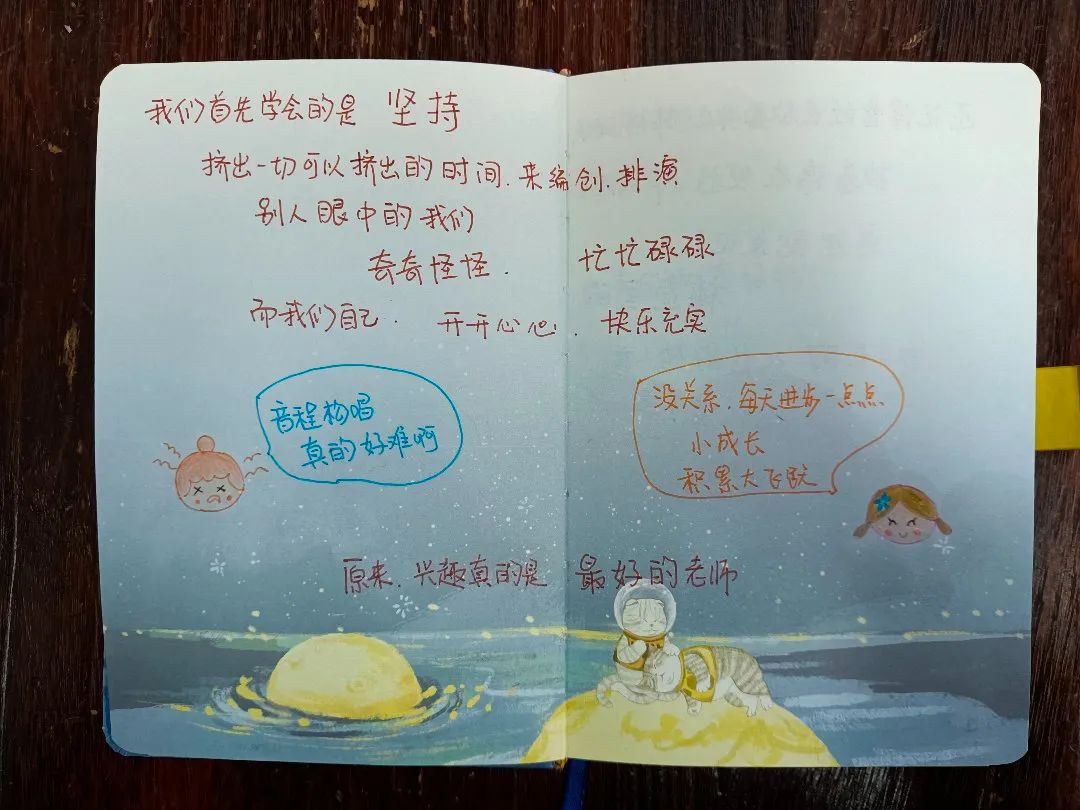 我们首先学会的是 坚持
挤出一切可以挤出的时间.来编创.排演
别人眼中的我们
奇奇怪怪. 忙忙碌碌
而我们自己. 开开心心. 快乐充实
音程构唱
真的好难啊
没关系.每天进步一点点
小成长
积累大飞跃
原来.兴趣真的是 最好的老师